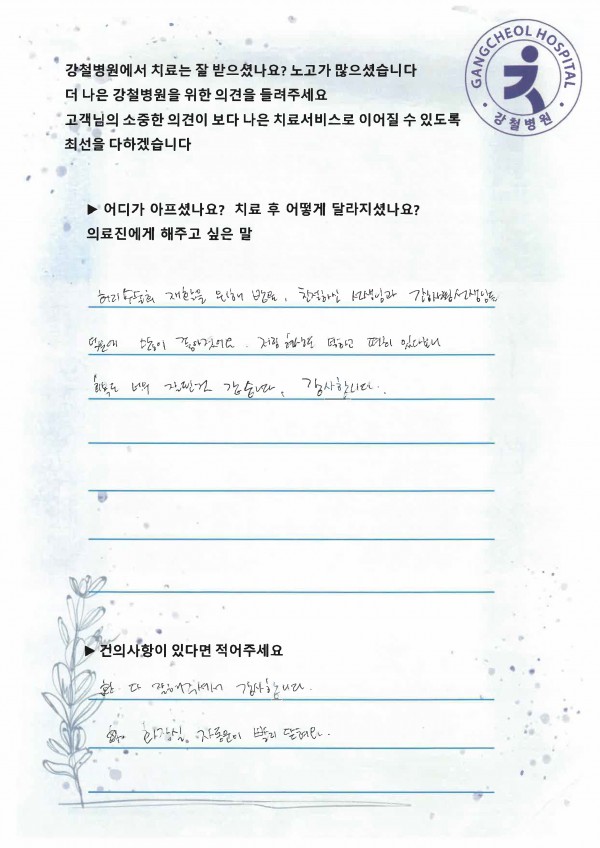 GANGCHEOL HOSPITAL
강철병원
강철병원에서 치료는 잘 받으셨나요? 노고가 많으셨습니다
더 나은 강철병원을 위한 의견을 들려주세요
고객님의 소중한 의견이 보다 나은 치료서비스로 이어질 수 있도록
최선을 다하겠습니다
▶ 어디가 아프셨나요? 치료 후 어떻게 달라지셨나요?
의료진에게 해주고 싶은 말
허리수술후 받음, 친절하신 선생님과 선생님들
덕분에 좋아졌어요. 먹하고 편히 있다보니
회복도 너무 잘된건 같습니다, 감사합니다.
▶ 건의사항이 있다면 적어주세요
다 감사합니다.
화장실 자동문이 빨리 닫혀요.